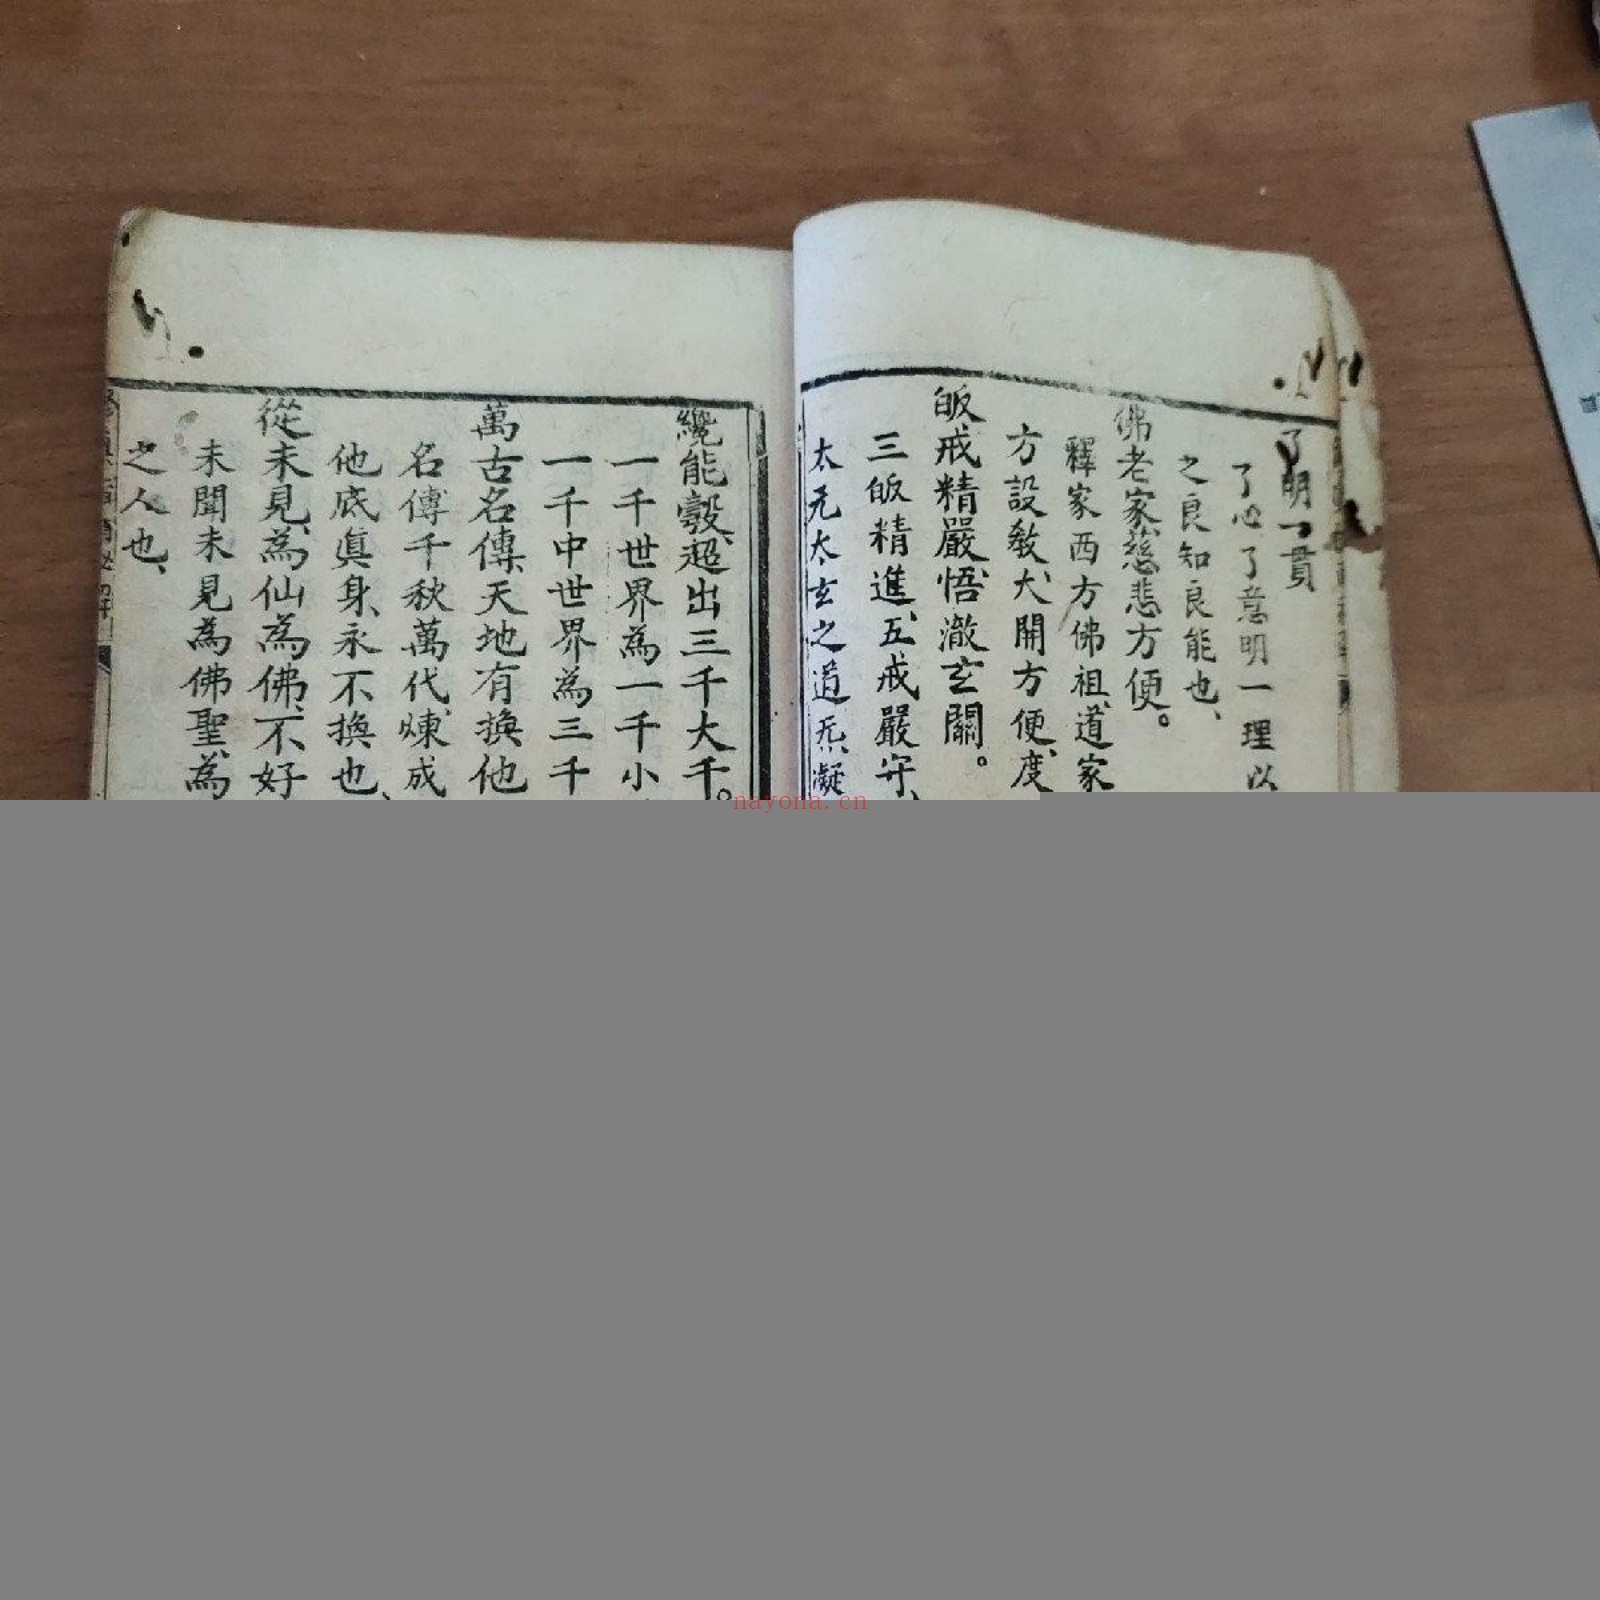 了明一貫
了心了意明一理以
之良知良能也、
佛老家慈悲方便。
釋家西方佛祖、道家
方設教、大開方便、度
皈戒精嚴、悟澈玄關。
三皈精進、五戒嚴守、
太无太玄之道炁、凝
纔能彀、超出三千大千。
一千世界為一千小
一千中世界為三千
萬古名傳、天地有換他
名傳千秋萬代、煉成
他底眞身、永不換也、
從未見、為仙為佛、不好
未聞未見為佛聖、為
之人也、
nayona.cn